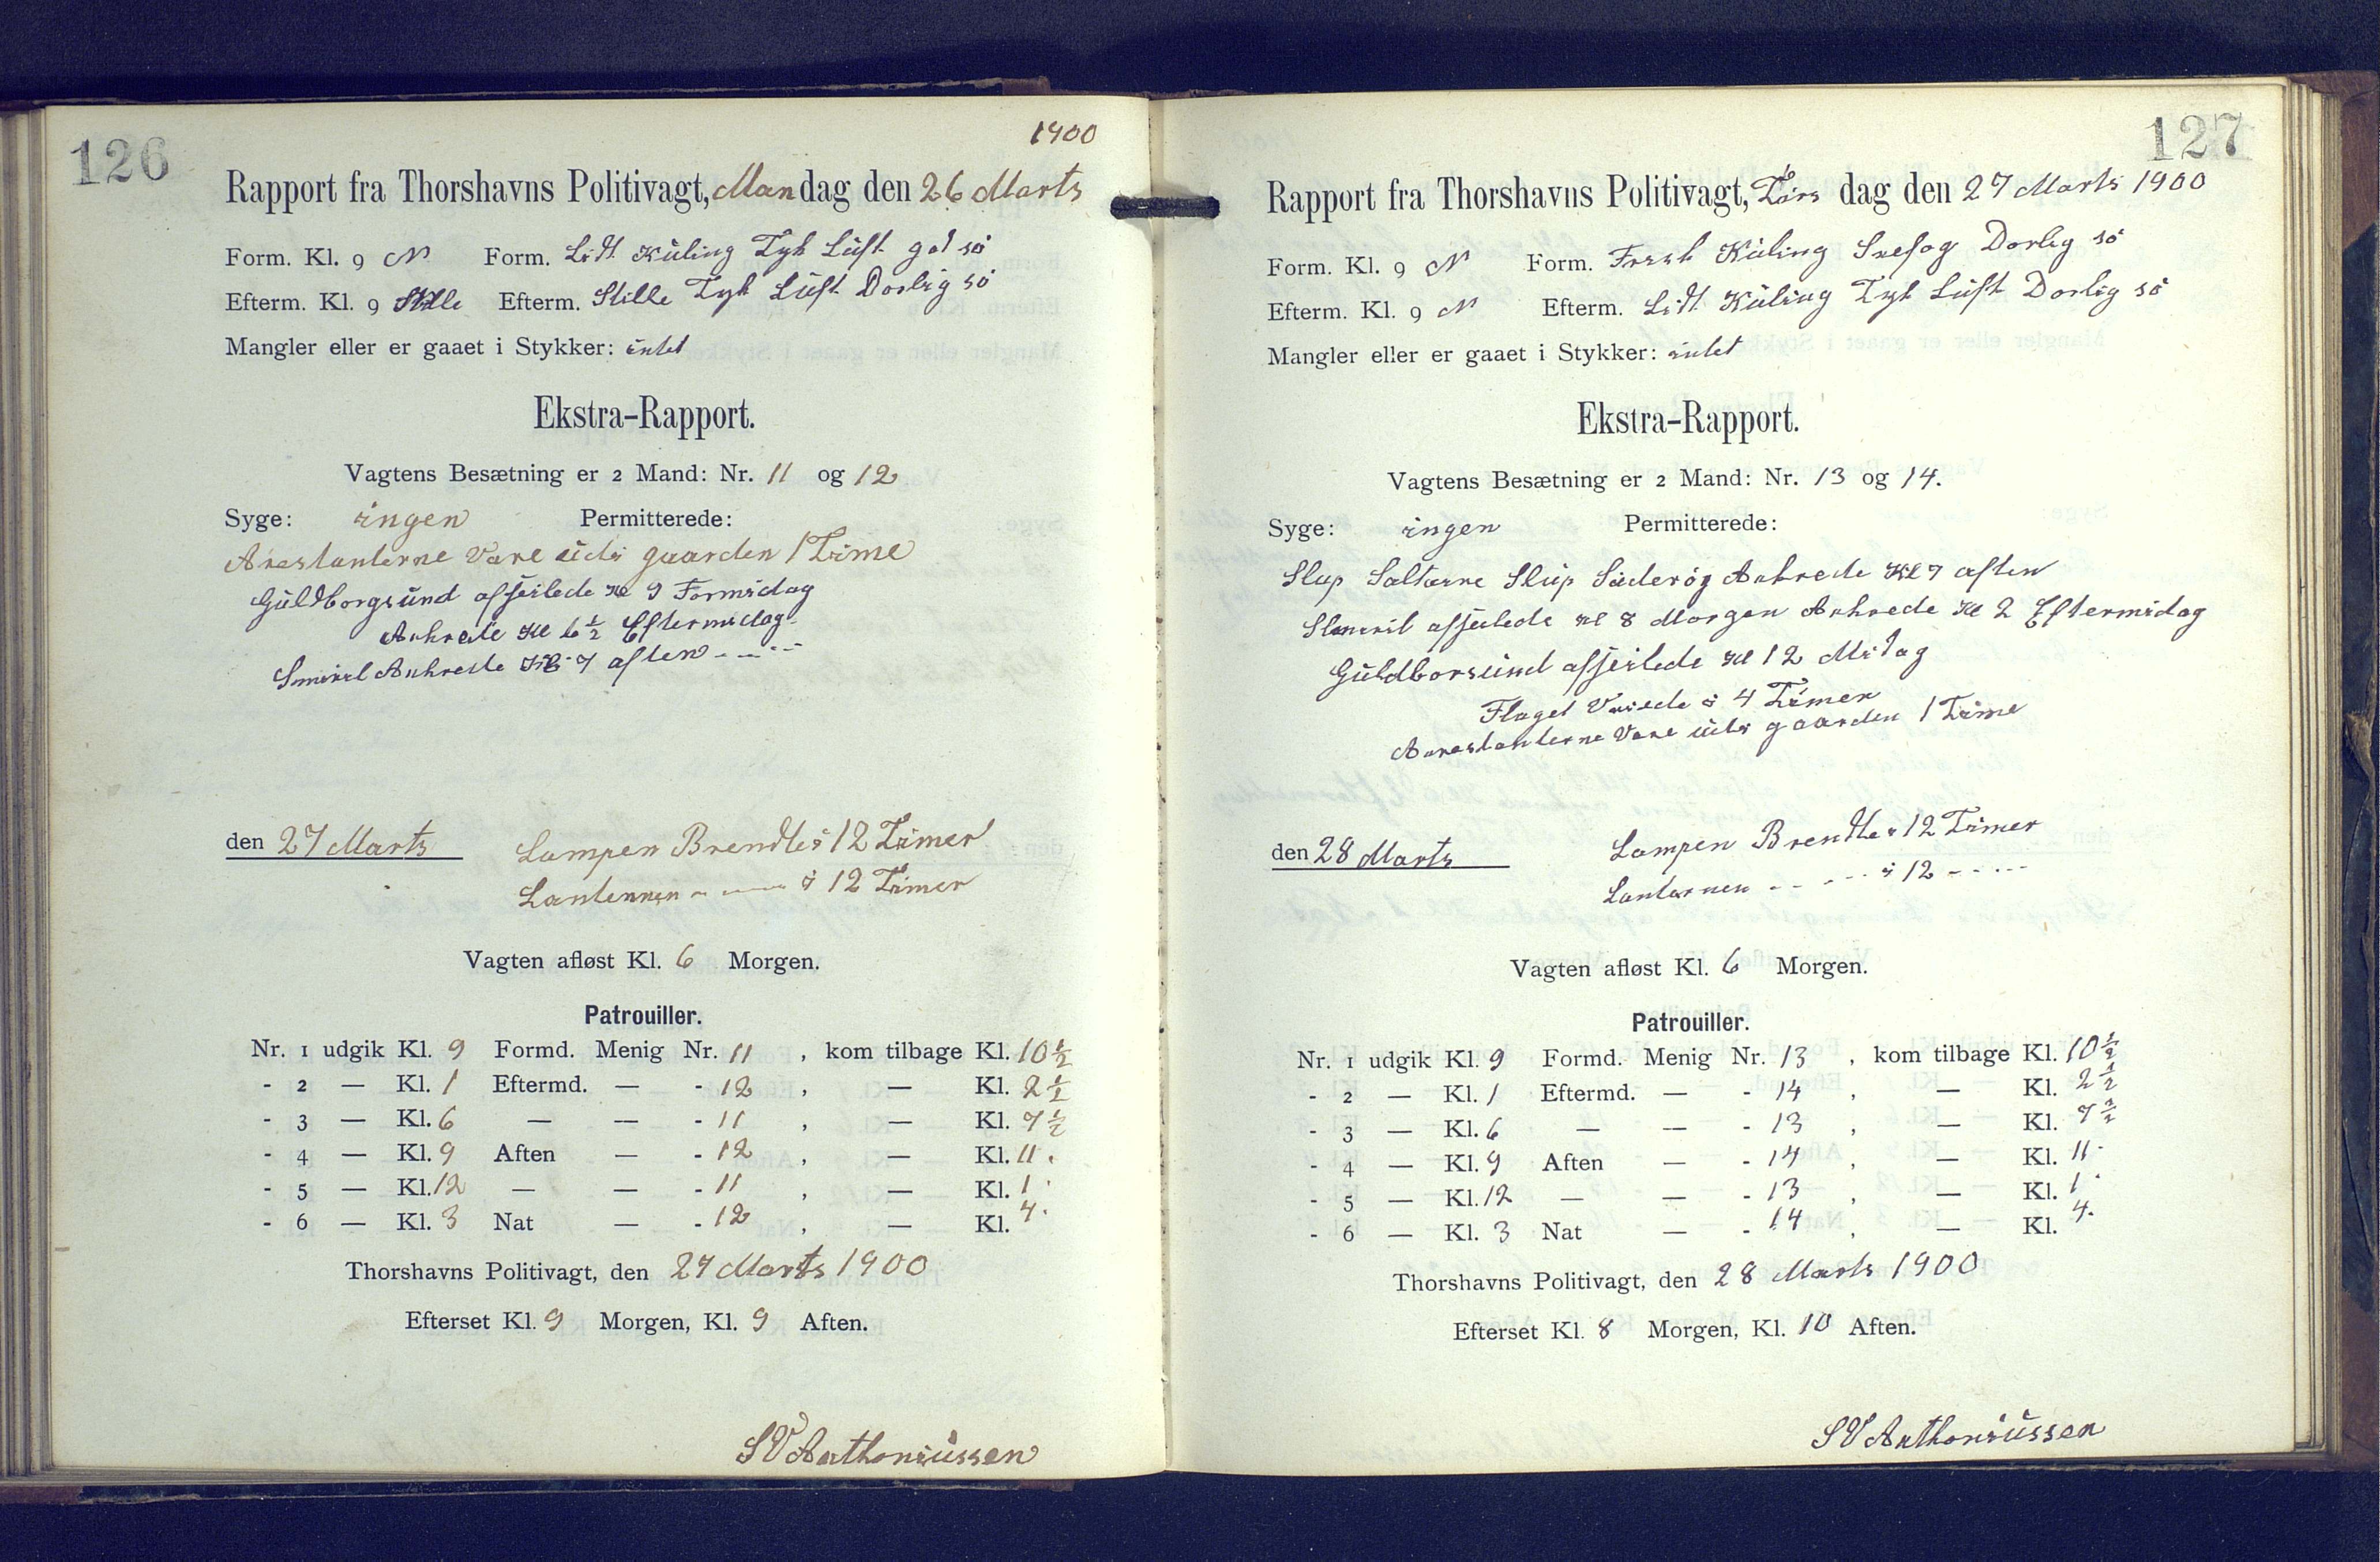 126
1900
Rapport fra Thorshavns Politivagt, Mandag den 26 Marts
Form. Kl. 9 N Form. Lidt Küling Tyk Lüft god sö
Efterm. Kl. 9 Stille Efterm. Stille Tyk Lüft Dorlig sö
Mangler eller er gaaet i Stykker: intet
Ekstra-Rapport.
Vagtens Besætning er 2 Mand: Nr. 11 og 12
Syge: ingen Permitterede:
Arestanterne Vare üdi gaarden 1 Time
Güldborgsünd afseilede Kl 9 Formidag
Ankrede Kl 6 1/2 Eftermidag
Smiril Ankrede Kl 7 aften
den 27 Marts Lampen Brendte i 12 Timer
Lanternen - — i 12 Timer
Vagten afløst Kl. 6 Morgen.
Patrouiller.
Nr. 1 udgik Kl. 9 Formd. Menig Nr. 11 , kom tilbage Kl. 10 1/2
- 2 — Kl. 1 Eftermd. — - 12 , — Kl. 2 1/2
- 3 — Kl. 6 — — - 11 , — Kl. 7 1/2
- 4 — Kl. 9 Aften — - 12 , — Kl. 11.
- 5 — Kl. 12 — — - 11 , — Kl. 1.
- 6 — Kl. 3 Nat — - 12 , — Kl. 4.
Thorshavns Politivagt, den 27 Marts 1900
Efterset Kl. 9 Morgen, Kl. 9 Aften.
SV Anthoniüssen
127
Rapport fra Thorshavns Politivagt, Tirsdag den 27 Marts 1900
Form. Kl. 9 N Form. Frisk Küling Snefog Dorlig sö
Efterm. Kl. 9 N Efterm. Lidt Küling Tyk Lüft Dorlig sö
Mangler eller er gaaet i Stykker: intet
Ekstra-Rapport.
Vagtens Besætning er 2 Mand: Nr. 13 og 14.
Syge: ingen Permitterede:
Slup Saltarne Slüp Süderöy Ankrede Kl 7 aften
Smiril afseilede Kl 8 Morgen Ankrede Kl 2 Eftermidag
Güldborsünd afseilede Kl 12 Midag
Flaget Vaiede i 4 Timer
Aarestanterne Vare üdi gaarden 1 Time
den 28 Marts Lampen Brendte i 12 Timer
Lanternen - - - - i 12 - - - -
Vagten afløst Kl. 6 Morgen.
Patrouiller.
Nr. 1 udgik Kl. 9 Formd. Menig Nr. 13 , kom tilbage Kl. 10 1/2
- 2 — Kl. 1 Eftermd. — - 14 , — Kl. 2 1/2
- 3 — Kl. 6 — — - 13 , — Kl. 7 1/2
- 4 — Kl. 9 Aften — - 14 , — Kl. 11.
- 5 — Kl. 12 — — - 13 , — Kl. 1.
- 6 — Kl. 3 Nat — - 14 , — Kl. 4.
Thorshavns Politivagt, den 28 Marts 1900
Efterset Kl. 8 Morgen, Kl. 10 Aften.
SV Anthoniüssen